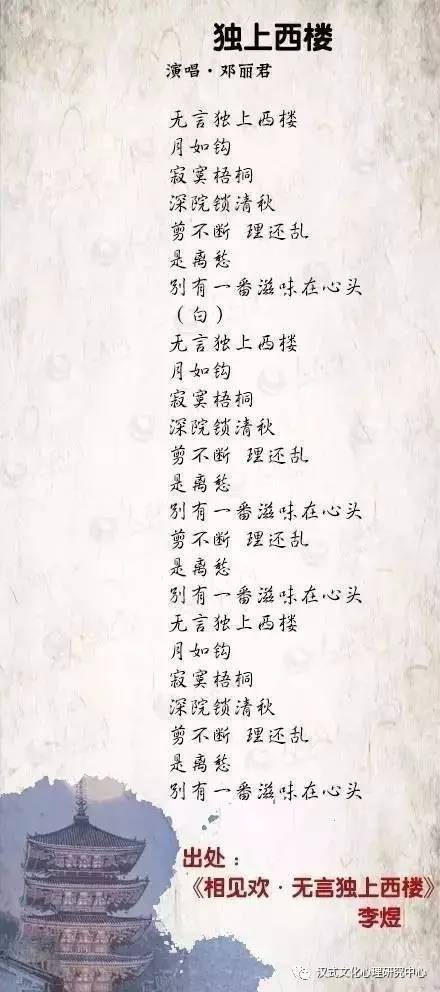 独上西楼
演唱·邓丽君
无言独上西楼
月如钩
寂寞梧桐
深院锁清秋
剪不断 理还乱
是离愁
别有一番滋味在心头
（白）
无言独上西楼
月如钩
寂寞梧桐
深院锁清秋
剪不断 理还乱
是离愁
别有一番滋味在心头
剪不断 理还乱
是离愁
别有一番滋味在心头
无言独上西楼
月如钩
寂寞梧桐
深院锁清秋
剪不断 理还乱
是离愁
别有一番滋味在心头
出处：
《相见欢·无言独上西楼》
李煜
汉式文化心理研究中心